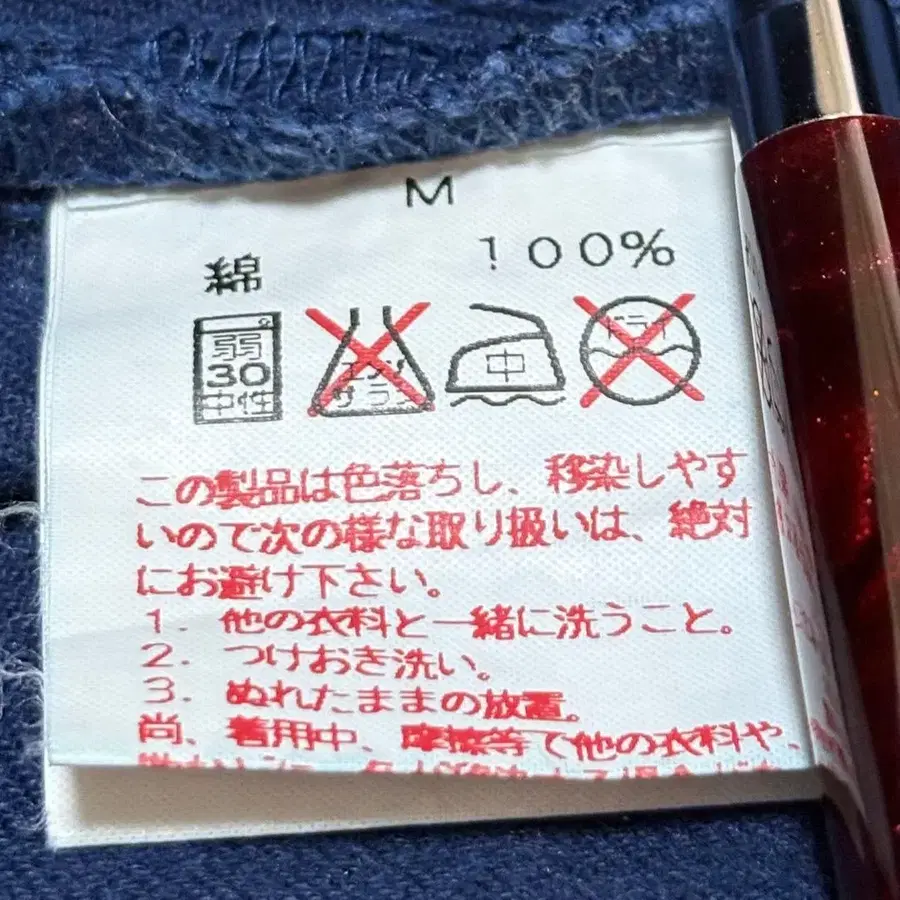 M
綿 100%
弱
30
中性
エンソ
サラシ
中
ドライ
この製品は色落ちし、移染しやす
いので次の様な取り扱いは、絶対
にお避け下さい。
1. 他の衣料と一緒に洗うこと。
2. つけおき洗い。
3. ぬれたままの放置。
尚、着用中、摩擦等で他の衣料や、